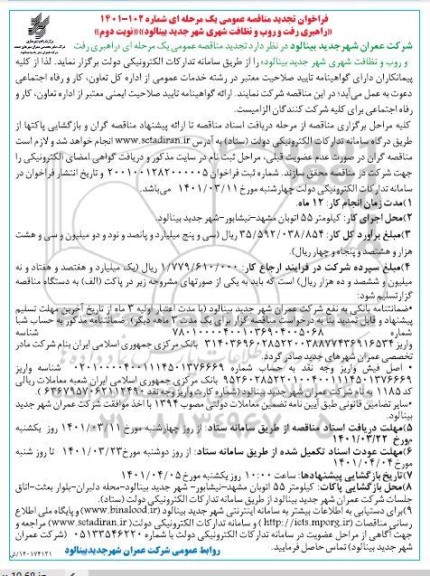 فراخوان تجدید مناقصه عمومی یک مرحله ای شماره ۱۰۲-۱۴۰۱
«راهبری رفت و روب و نظافت شهری شهر جدید بینالود»«نوبت دوم»
شرکت عمران شهر جدید بینالود در نظر دارد تجدید مناقصه عمومی یک مرحله ای «راهبری رفت
و روب و نظافت شهری شهر جدید بینالود» را از طریق سامانه تدارکات الکترونیکی دولت برگزار نماید. لذا از کلیه
پیمانکاران دارای گواهینامه تایید صلاحیت معتبر در رشته خدمات عمومی از اداره کل تعاون، کار و رفاه اجتماعی
دعوت به عمل می‌آید؛ در این مناقصه شرکت نمایند. ارائه گواهینامه تایید صلاحیت ایمنی معتبر از اداره تعاون، کار و
رفاه اجتماعی برای کلیه شرکت کنندگان الزامیست.
کلیه مراحل برگزاری مناقصه از مرحله دریافت اسناد مناقصه تا ارائه پیشنهاد مناقصه گران و بازگشایی پاکتها از
طریق درگاه سامانه تدارکات الکترونیکی دولت (ستاد) به آدرس www.setadiran.ir انجام خواهد شد و لازم است
مناقصه گران در صورت عدم عضویت قبلی، مراحل ثبت نام در سایت مذکور و دریافت گواهی امضای الکترونیکی را
جهت شرکت در مناقصه محقق سازند. شماره ثبت فراخوان ۲۰۰۱۰۰۱۲۸۲۰۰۰۰۰۵ و تاریخ انتشار فراخوان در
سامانه تدارکات الکترونیکی دولت چهارشنبه مورخ ۱۴۰۱/۰۳/۱۱ می‌باشد.
۱)مدت زمان انجام کار: ۱۲ ماه.
۲)محل اجرای کار: کیلومتر ۵۵ اتوبان مشهد-نیشابور-شهر جدید بینالود.
۳)مبلغ برآورد کل کار: ۳۵/۵۹۲/۰۳۸/۸۵۴ ریال (سی و پنج میلیارد و پانصد و نود و دو میلیون و سی و هشت
هزار و هشتصد و پنجاه و چهار ریال).
۴)مبلغ سپرده شرکت در فرایند ارجاع کار: ۱/۷۷۹/۶۱۰/۰۰۰ ریال (یک میلیارد و هفتصد و هفتاد و نه
میلیون و ششصد و ده هزار ریال) است که باید به یکی از صورتهای مشروحه زیر در پاکت (الف) به دستگاه مناقصه
گزار تسلیم شود:
*ضمانتنامه بانکی به نفع شرکت عمران شهر جدید بینالود (با مدت اعتبار اولیه ۳ ماه از تاریخ آخرین مهلت تسلیم
پیشنهاد و قابل تمدید بنا به درخواست مناقصه گزار برای یک مدت ۳ ماهه دیگر). ضمانتنامه مذکور به حساب شبا
شماره ۷۸۰۱۰۰۰۰۴۰۰۱۰۳۶۹۰۴۰۰۵۰۶۸ شناسه
واریز ۳۱۴۰۳۶۹۶۰۲۸۵۲۲۰۰۳۸۸۷۷۴۳۶۹۱۶۵۳۴ بانک مرکزی جمهوری اسلامی ایران بنام شرکت مادر
تخصصی عمران شهرهای جدید صادر گردد.
* اصل فیش واریز وجه نقد به حساب شماره شناسه واریز
بانک مرکزی جمهوری اسلامی ایران شعبه معاملات ریالی
کد ۱۱۸۵ به نام شرکت عمران شهر جدید بینالود
*سایر تضامین قانونی طبق آیین نامه تضمین معاملات دولتی مصوب ۱۳۹۴ با اخذ موافقت شرکت عمران شهر جدید
بینالود.
۵)مهلت دریافت اسناد مناقصه از طریق سامانه ستاد: از روز چهارشنبه مورخ ۱۴۰۱/۰۳/۱۱ روز یکشنبه
مورخ ۱۴۰۱/۰۳/۲۲
۶)مهلت عودت اسناد تکمیل شده از طریق سامانه ستاد: از روز دوشنبه مورخ ۱۴۰۱/۰۳/۲۳ تا روز شنبه
مورخ ۱۴۰۱/۰۴/۰۴
۷)تاریخ بازگشایی پیشنهادها: ساعت ۱۰:۰۰ روز یکشنبه مورخ ۱۴۰۱/۰۴/۰۵
۸)محل بازگشایی پاکات: کیلومتر ۵۵ اتوبان مشهد-نیشابور-شهر جدید بینالود-محله دلبران-بلوار بعثت-اتاق
جلسات شرکت عمران شهر جدید بینالود از طریق سامانه تدارکات الکترونیکی دولت (ستاد).
۹)برای دستیابی به اطلاعات بیشتر به سامانه اینترنتی شهر جدید بینالود (www.binalood.ir) و پایگاه ملی اطلاع
رسانی مناقصات (http://iets.mporg.ir) و سامانه تدارکات الکترونیکی دولت (www.setadiran.ir) مراجعه و
جهت آگاهی از مراحل عضویت در سامانه تدارکات الکترونیکی دولت با شماره (۰۵۱۳۳۵۴۶۲۲۰ شرکت عمران
شهر جدید بینالود) تماس حاصل فرمایید.
روابط عمومی شرکت عمران شهر جدید بینالود